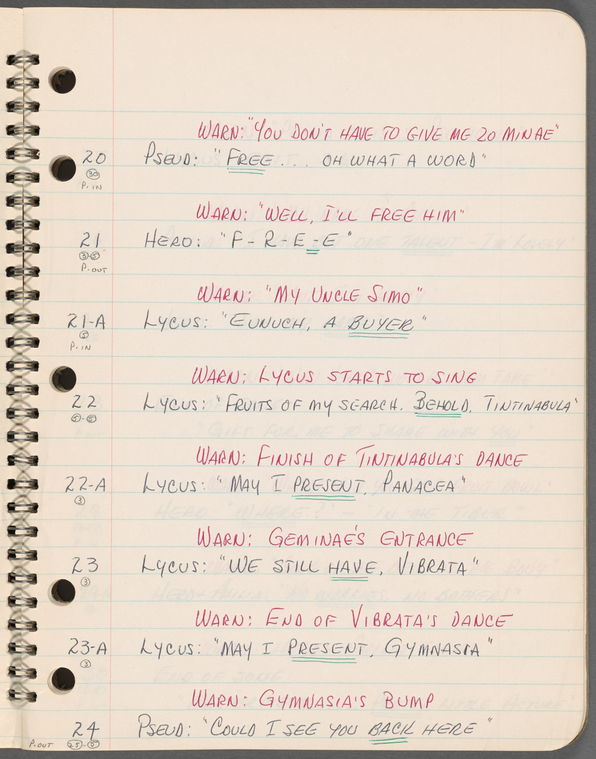 WARN: "YOU DON'T HAVE TO GIVE ME 20 MINAE"
20 PSEUD: "FREE... OH WHAT A WORD"
30
P. IN
WARN: "WELL, I'LL FREE HIM"
21 HERO: "F-R-E-E"
P. OUT
WARN: "MY UNCLE SIMO"
21-A LYCUS: "EUNUCH, A BUYER"
5
P. IN
WARN: LYCUS STARTS TO SING
22 LYCUS: "FRUITS OF MY SEARCH. BEHOLD, TINTINABULA"
WARN: FINISH OF TINTINABULA'S DANCE
22-A LYCUS: "MAY I PRESENT, PANACEA"
3
WARN: GEMINAE'S ENTRANCE
23 LYCUS: "WE STILL HAVE, VIBRATA"
3
WARN: END OF VIBRATA'S DANCE
23-A LYCUS: "MAY I PRESENT, GYMNASIA"
3
WARN: GYMNASIA'S BUMP
24 PSEUD: "COULD I SEE YOU BACK HERE"
P. OUT